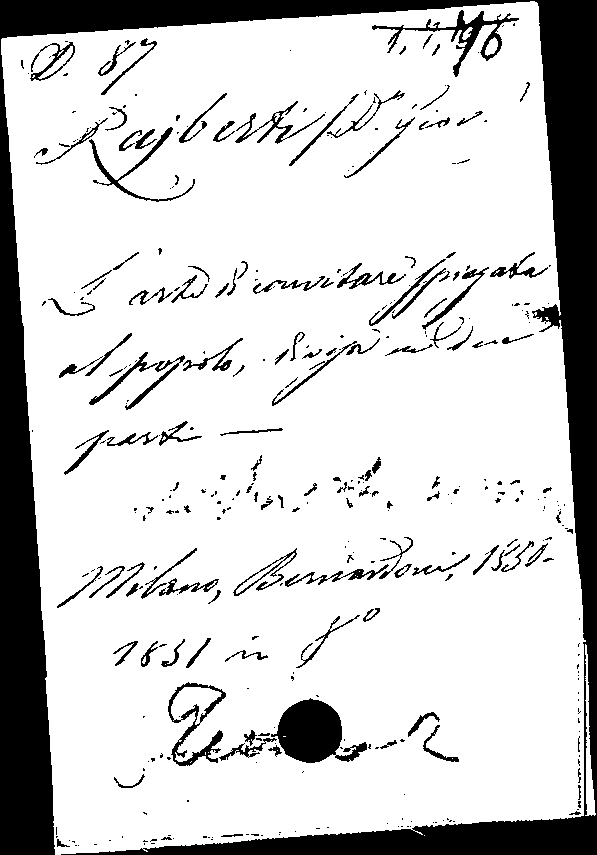 D. 87
Rajberti (Dr. Giov.
L'arte di convitare spiegata
al popolo, divisa in due
parti —
Milano, Bernardoni, 1850-
1851 in 8º